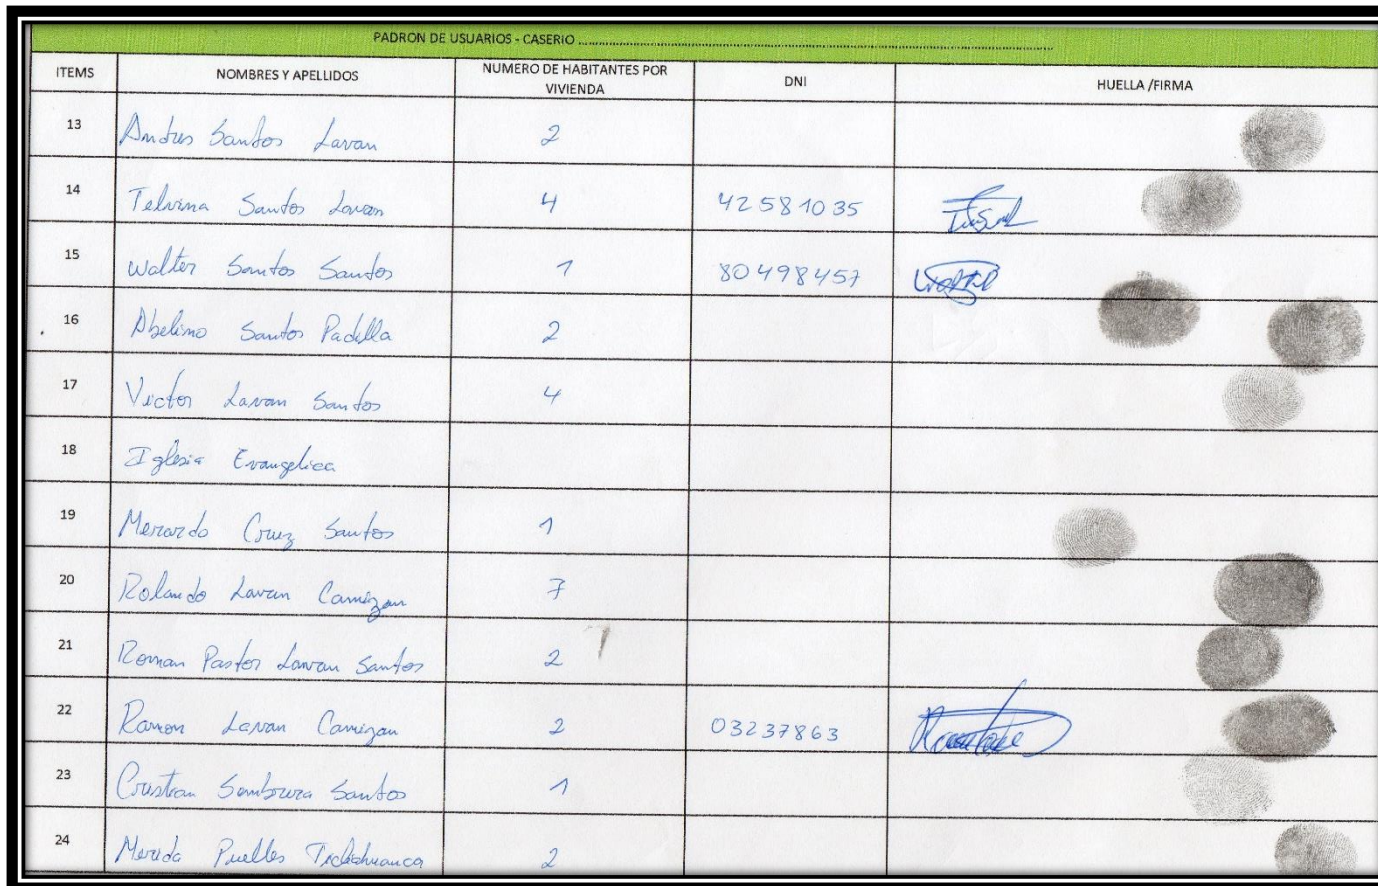 PADRON DE USUARIOS - CASERIO
ITEMS NOMBRES Y APELLIDOS NUMERO DE HABITANTES POR VIVIENDA DNI HUELLA /FIRMA
13 Andres Santos Lavan 2
14 Telvina Santos Lavan 4 42581035
15 Walter Santos Santos 1 80498457
16 Abelino Santos Padilla 2
17 Victor Lavan Santos 4
18 Iglesia Evangelica
19 Merardo Cruz Santos 1
20 Rolando Lavan Camizan 7
21 Roman Pastor Lavan Santos 2
22 Ramon Lavan Camizan 2 03237863
23 Santos 1
24 Merida Puelles 2